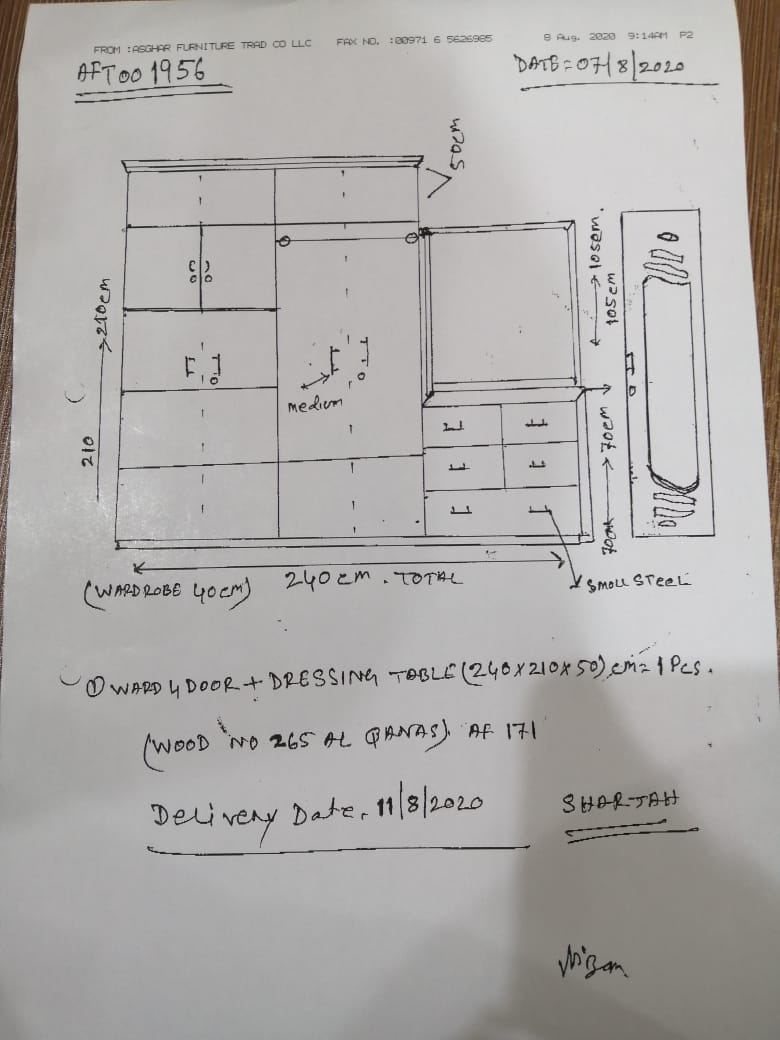 FROM :ASGHAR FURNITURE TRAD CO LLC FAX NO. :00971 6 5626985 8 Aug. 2020 9:14AM P2
AFT001956
DATE=07/8/2020
50cm
210cm
210
105cm.
105cm
medium
70cm
70cm
(WARDROBE 40cm)
240cm. TOTAL
SMOLL STEEL
① WARD 4 DOOR + DRESSING TABLE (240X210X50) cm= 1 Pcs.
(WOOD NO 265 AL QANAS). AF 171
Delivery Date. 11/8/2020
SHARJAH